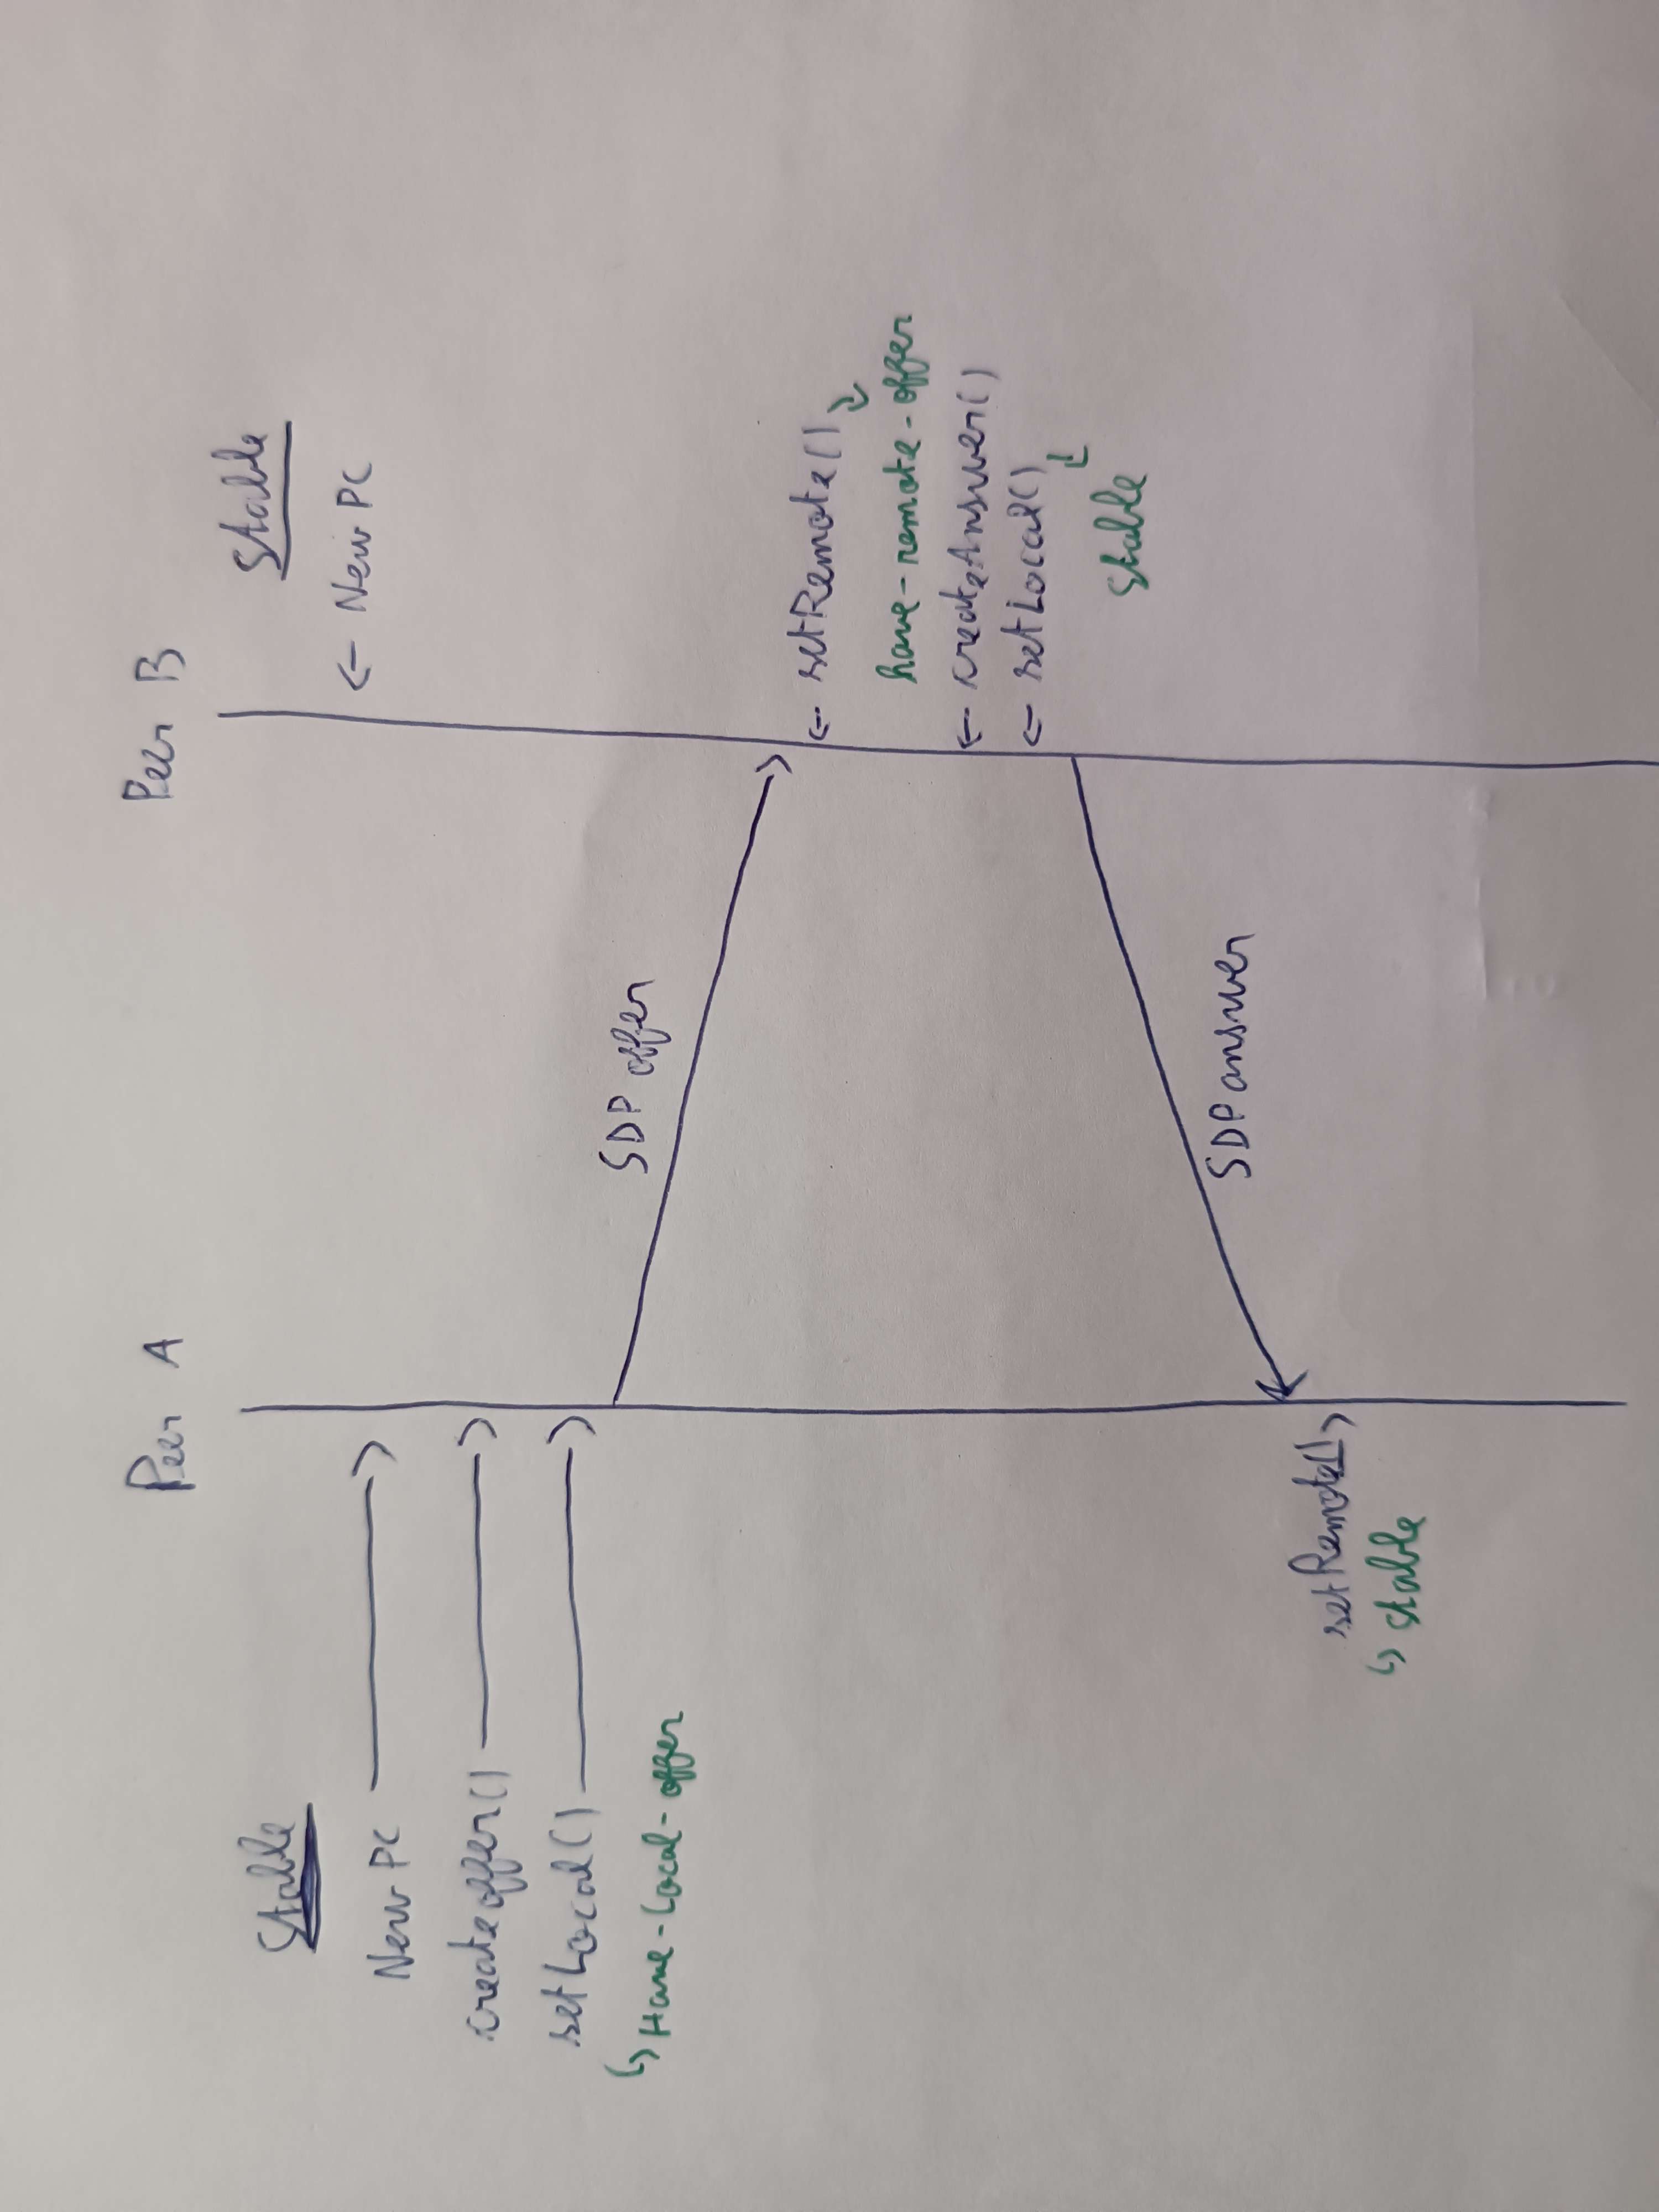 Peer A
Peer B
Stable
Stable
New PC
New PC
createoffer()
setLocal()
Have-Local-offer
SDP offer
setRemote()
have-remote-offer
createAnswer()
setLocal()
Stable
SDP answer
setRemote()
stable